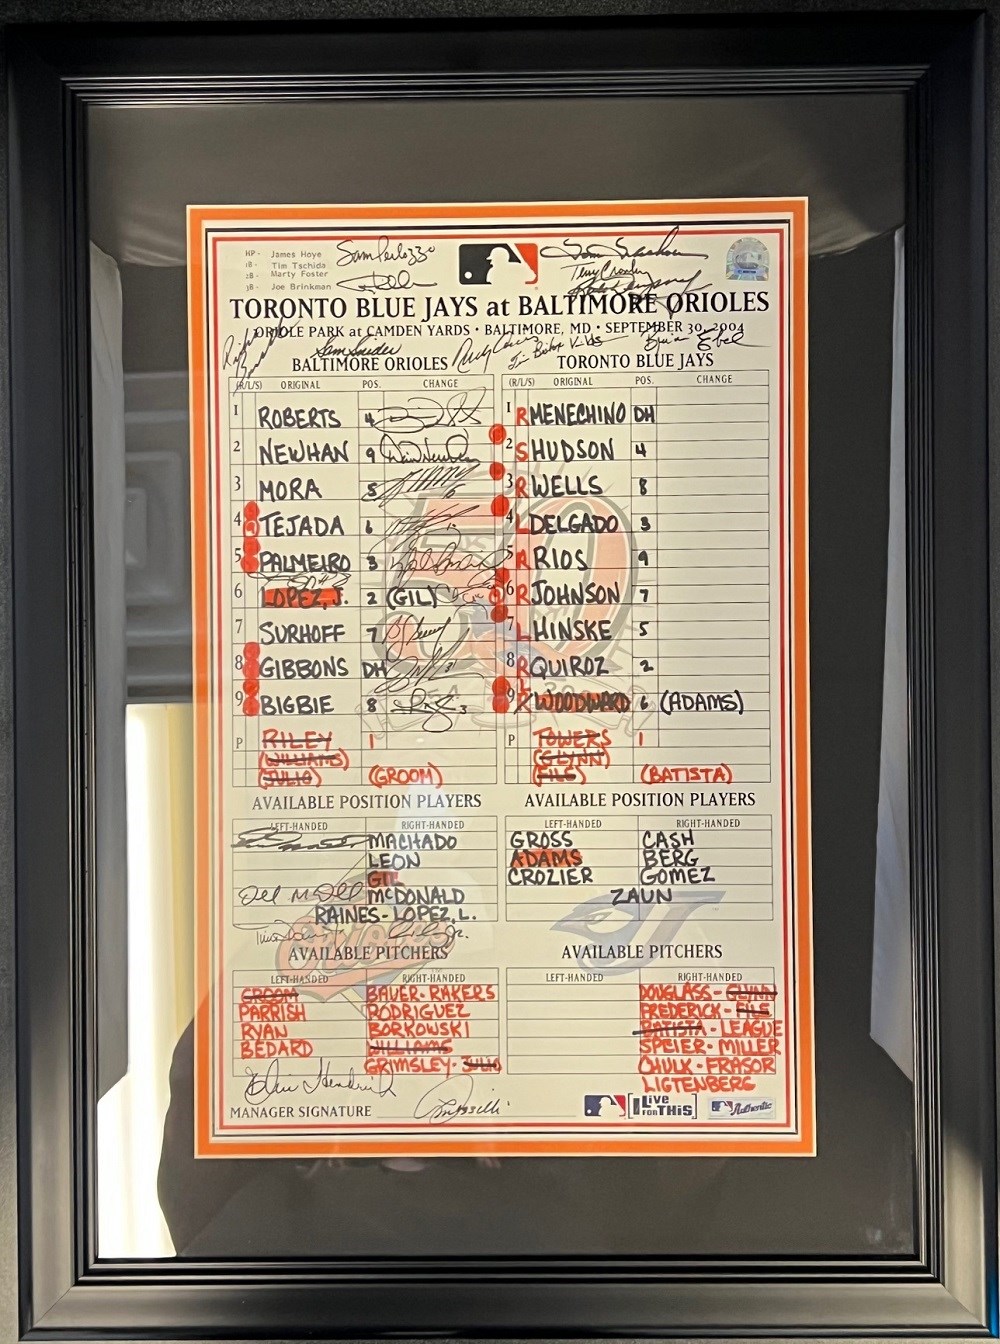 HP- James Hoye
1B- Tim Tschida
2B- Marty Foster
3B- Joe Brinkman
TORONTO BLUE JAYS at BALTIMORE ORIOLES
ORIOLE PARK at CAMDEN YARDS • BALTIMORE, MD • SEPTEMBER 30, 2004
BALTIMORE ORIOLES
(R/L/S) ORIGINAL POS. CHANGE
1 ROBERTS 4
2 NEWHAN 9
3 MORA 5
4 TEJADA 6
5 PALMEIRO 3
6 LOPEZ, J. 2 (GIL)
7 SURHOFF 7
8 GIBBONS DH
9 BIGBIE 8
P RILEY 1
(WILLIAMS)
(JULIO) (GROOM)
AVAILABLE POSITION PLAYERS
LEFT-HANDED RIGHT-HANDED
MACHADO
LEON
GIL
McDONALD
RAINES - LOPEZ, L.
AVAILABLE PITCHERS
LEFT-HANDED RIGHT-HANDED
GROOM BAUER - RAKERS
PARRISH RODRIGUEZ
RYAN BORKOWSKI
BEDARD WILLIAMS
GRIMSLEY - JULIO
MANAGER SIGNATURE
TORONTO BLUE JAYS
(R/L/S) ORIGINAL POS. CHANGE
1 R MENECHINO DH
2 S HUDSON 4
3 R WELLS 8
4 L DELGADO 3
5 R RIOS 9
6 R JOHNSON 7
7 L HINSKE 5
8 R QUIROZ 2
9 R WOODWARD 6 (ADAMS)
L
P TOWERS 1
(GLYNN)
(FILE) (BATISTA)
AVAILABLE POSITION PLAYERS
LEFT-HANDED RIGHT-HANDED
GROSS CASH
ADAMS BERG
CROZIER GOMEZ
ZAUN
AVAILABLE PITCHERS
LEFT-HANDED RIGHT-HANDED
DOUGLASS - GLYNN
FREDERICK - FILE
BATISTA - LEAGUE
SPEIER - MILLER
CHULK - FRASOR
LIGTENBERG
I Live FOR THiS
Authentic